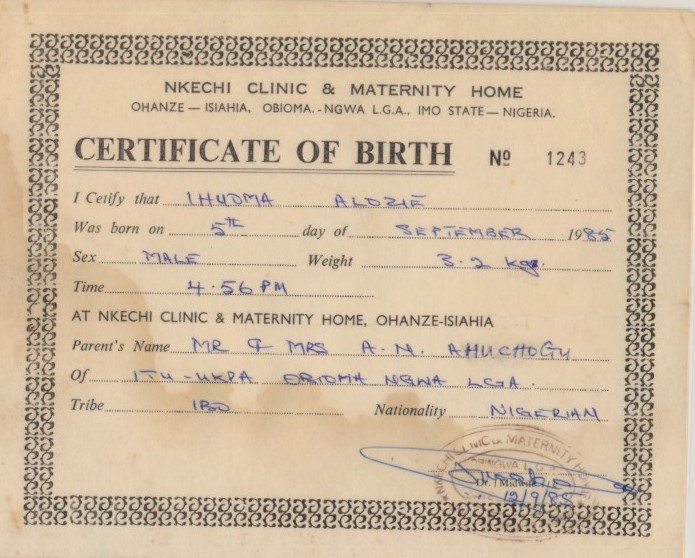 NKECHI CLINIC & MATERNITY HOME
OHANZE — ISIAHIA, OBIOMA.-NGWA L.G.A., IMO STATE — NIGERIA.
CERTIFICATE OF BIRTH No 1243
I Cetify that IHUOMA ALOZIE
Was born on 5th day of SEPTEMBER 1985
Sex MALE Weight 3.2 kg.
Time 4.56 PM
AT NKECHI CLINIC & MATERNITY HOME, OHANZE-ISIAHIA
Parent's Name MR & MRS A. N. AHUCHOGU
Of ITU-UKPA OBIOMA NGWA LGA.
Tribe IBO Nationality NIGERIAN
NKECHI CLINIC & MATERNITY HOME
NGWA L.G.A.
Dr. / Midwife
12/9/85